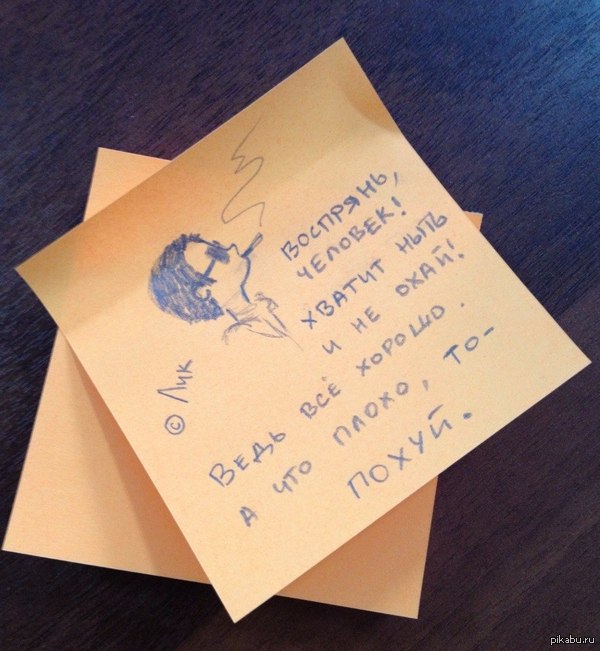 ВОСПРЯНЬ,
ЧЕЛОВЕК!
ХВАТИТ НЫТЬ
И НЕ ОХАЙ!
ВЕДЬ ВСЁ ХОРОШО.
А ЧТО ПЛОХО, ТО-
ПОХУЙ.
© Лик
pikabu.ru